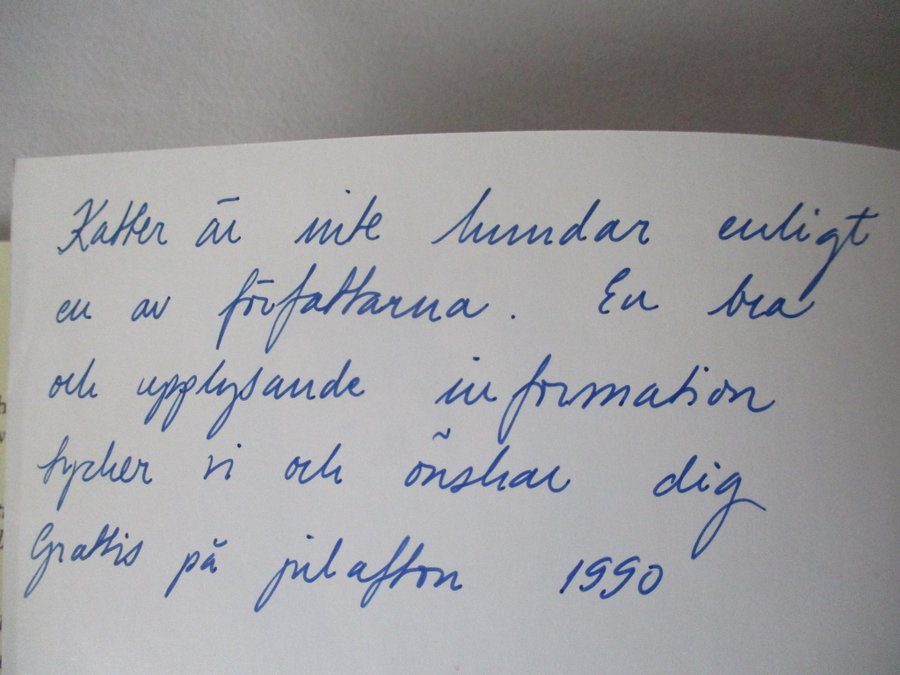 Katter är inte hundar enligt
en av författarna. En bra
och upplysande information
tycker vi och önskar dig
Grattis på julafton 1990